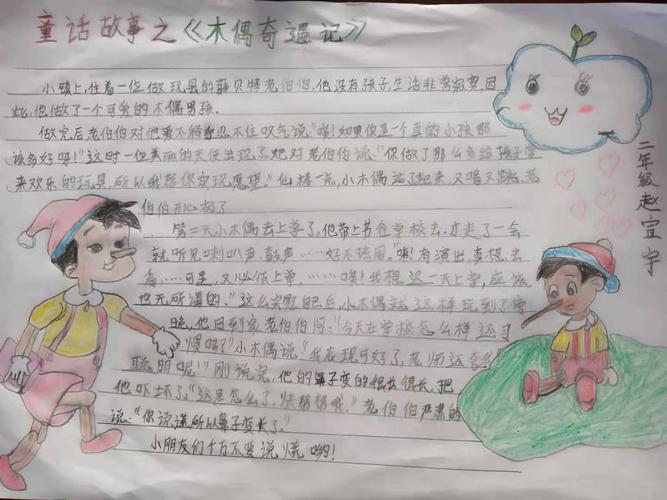 童话故事之《木偶奇遇记》
小镇上,住着一位做玩具的 贝特老伯伯,他没有孩子生活非常寂寞因
此,他做了一个可爱的木偶男孩。
做完后老伯伯对他 不 不住叹气说:"唉!如果你是一个真的小孩那
该多好呀!"这时一位美丽的天使出现了她对老伯伯说:"你做了那么多给孩子带
来欢乐的玩具,所以我替你实现愿望。"仙棒一点,小木偶站了起来,又唱又跳,老
伯伯开心极了
第二天小木偶去上学了,他带上书 学校去,才走了一会
就听见喇叭声,鼓声……好不热闹。"唉!有演出,真想去
看……可是,又必须上学,……唉!我想迟一天上学,应该
也无所谓的。"这么 把后,小木偶就这样玩到了傍
晚,他回到家老伯伯问:"今天在学校怎么样还习
惯吗?"小木偶说:"我表现可好了,老师还夸我
聪明呢!"刚说完,他的鼻子变的很长很长,把
他吓坏了,"这是怎么了,快帮帮我。"老伯伯严肃的
说:"你说谎所以鼻子变长了。"
小朋友们千万不要说谎哟!
二年级赵宣宇